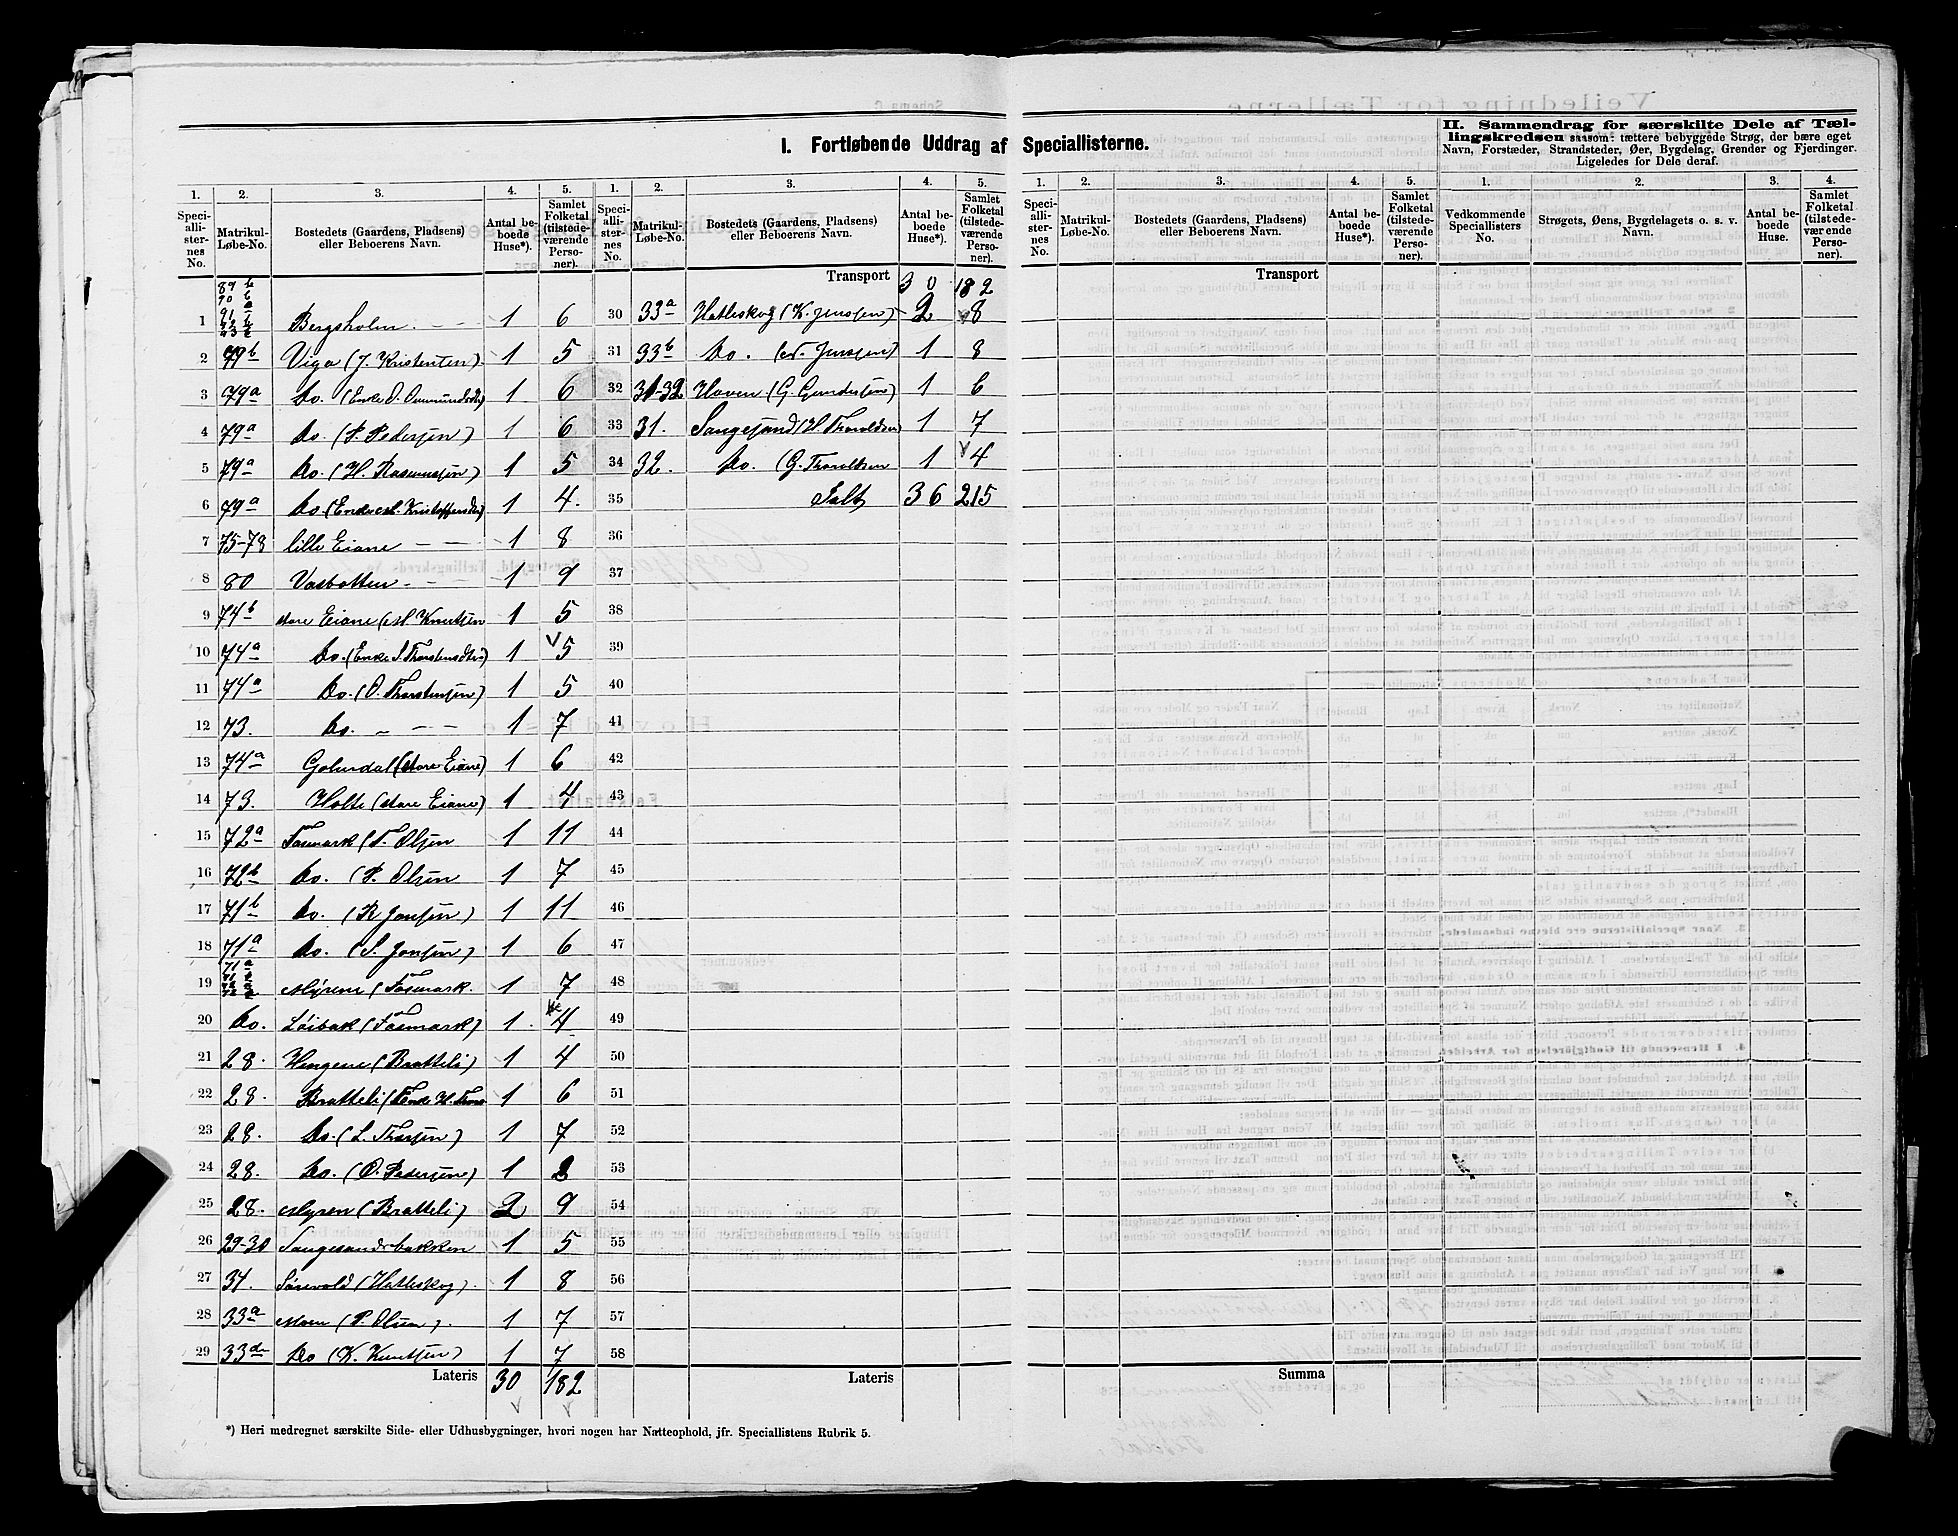 I. Fortløbende Uddrag af Speciallisterne.
II. Sammendrag for særskilte Dele af Tæl-
lingskredsen saasom: tættere bebyggede Strøg, der bære eget
Navn, Forstæder, Strandsteder, Øer, Bygdelag, Grender og Fjerdinger.
Ligeledes for Dele deraf.
1. 2. 3. 4. 5. 1. 2. 3. 4. 5. 1. 2. 3. 4. 5. 1. 2. 3. 4.
Speciallisternes No. Matrikul-Løbe-No. Bostedets (Gaardens, Pladsens) eller Beboerens Navn. Antal beboede Huse*). Samlet Folketal (tilstedeværende Personer).
Speciallisternes No. Matrikul-Løbe-No. Bostedets (Gaardens, Pladsens) eller Beboerens Navn. Antal beboede Huse*). Samlet Folketal (tilstedeværende Personer).
Speciallisternes No. Matrikul-Løbe-No. Bostedets (Gaardens, Pladsens) eller Beboerens Navn. Antal beboede Huse*). Samlet Folketal (tilstedeværende Personer).
Vedkommende Speciallisters No. Strøgets, Øens, Bygdelagets o. s. v. Navn. Antal beboede Huse. Samlet Folketal (tilstedeværende Personer).
1 89 b 90 b Bergsholm 1 6
2 79b Viga (J. Kristensen) 1 5
3 79a Do. (Enke O. 1 6
4 79a Do. (P. Pedersen) 1 6
5 79a Do. (H. Rasmussen) 1 5
6 79a Do. 1 4.
7 75-78 lille Eiane 1 8
8 80 Vasbotten 1 9
9 74b store Eiane (M. Knutsen 1 5
10 74a Do. (Enke S. 1 5
11 74a Do. (O. Thorstensen) 1 5
12 73. Do. 1 7
13 74a (store Eiane) 1 6
14 73. Holte (store Eiane) 1 4
15 72a Fosmark (T. Olsen 1 11
16 72b Do. (P. Olsen 1 7
17 71b Do. (R. Jonsen) 1 11
18 71a Do. (S. Jonsen) 1 6
19 71a Myrene (Fosmark. 1 7
20 Do. Løibak (Fosmark) 1 4
21 28. Hengene (Bratteli) 1 4
22 28. Bratteli 1 6
23 28. Do. (L. Thorsen) 1 7
24 28. Do. (O. Pedersen) 1 2
25 28. Myren (Bratteli) 2 9
26 29-30 Sangesandsbakken 1 5
27 34. Sørevold (Hatleskog). 1 8
28 33a Moen (P. Olsen). 1 7
29 33a Do (K. Knutsen) 1 7
Lateris 30 182
Transport 30 182
30 33a Hatleskog (K. Jenssen) 2 8
31 33b Do. (N. Jenssen) 1 8
32 31-32 Haven (G. Gundersen) 1 6
33 31. Sangesand (H. Thoroldsen) 1 7
34 32. Do. (G. Thoroldsen 1 4
35 Ialt 36 215
36
37
38
39
40
41
42
43
44
45
46
47
48
49
50
51
52
53
54
55
56
57
58
Lateris
Transport
Summa
*) Heri medregnet særskilte Side- eller Udhusbygninger, hvori nogen har Natteophold, jfr. Speciallistens Rubrik 5.